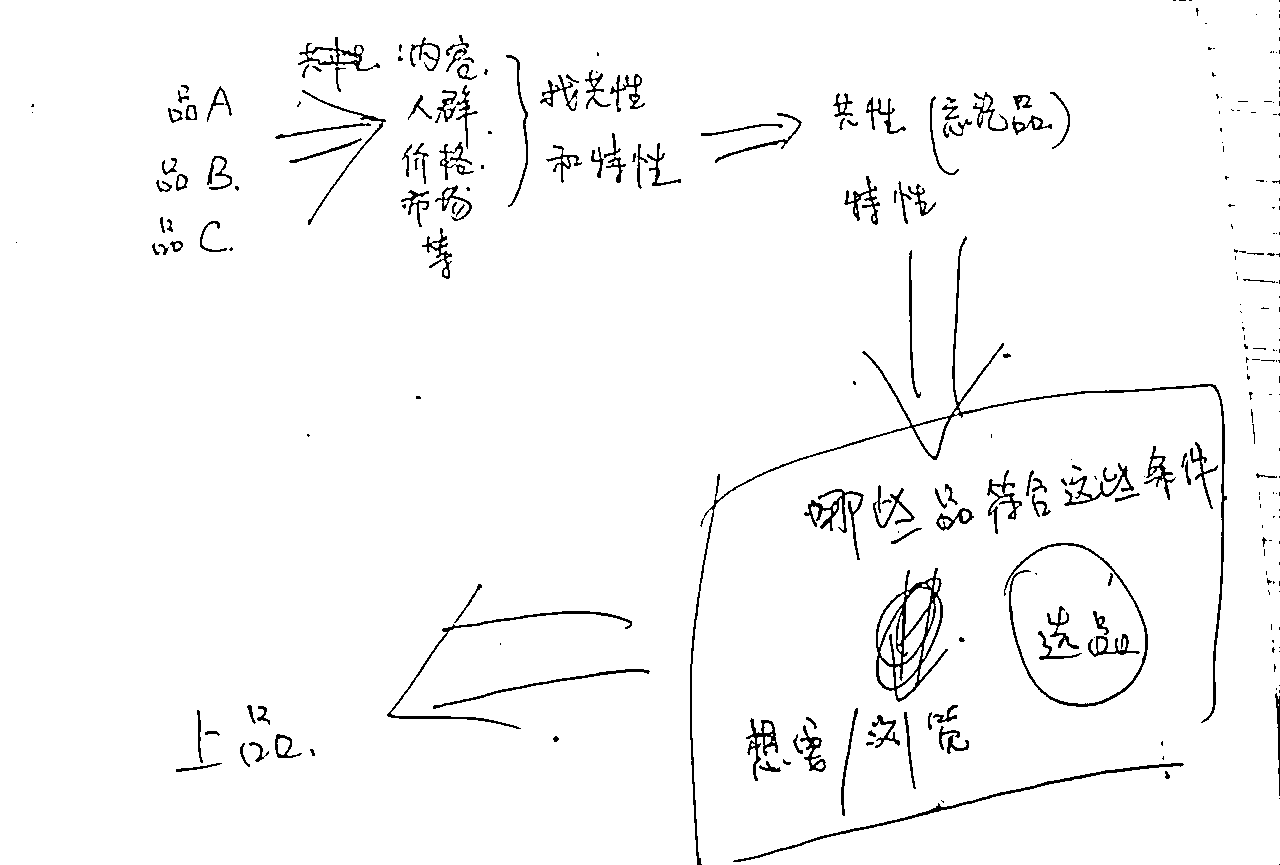 品A
品B.
品C.
共性:内容.
人群
价格.
市场
等
找共性
和特性
共性(忘记品)
特性
哪些品符合这些条件
选品
想要/浏览
上品.